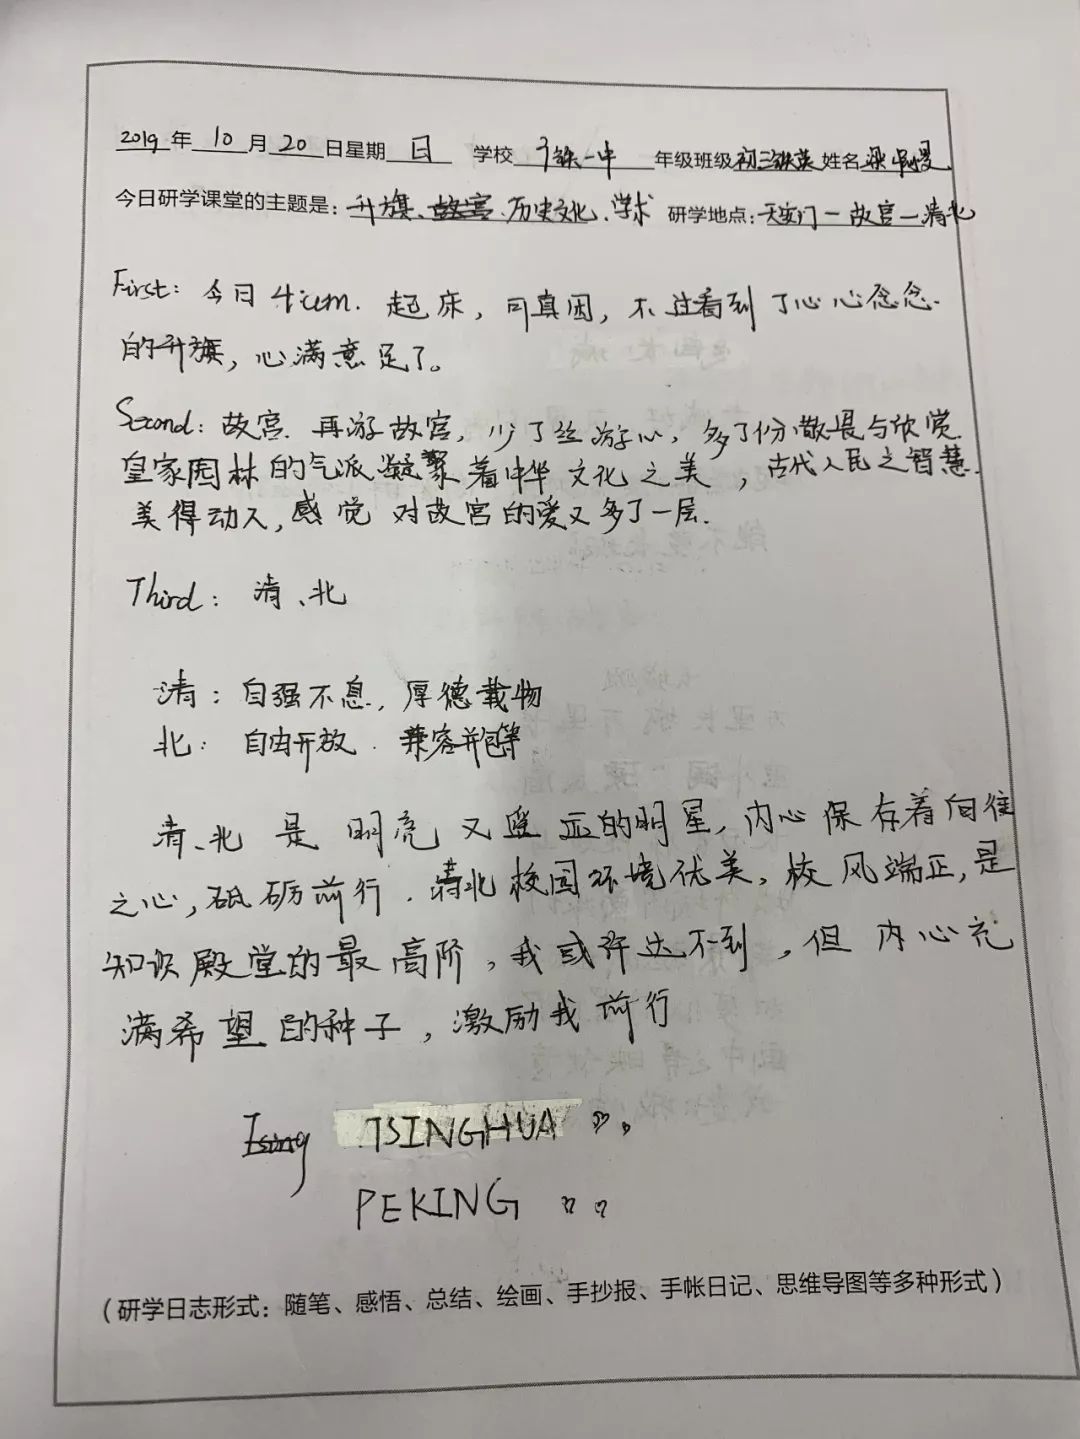 2019年 10月20日星期 日 学校 广铁一中 年级班级 初三铁英 姓名 梁
今日研学课堂的主题是: 升旗、故宫.历史文化、学术 研学地点: 天安门—故宫—清北
First: 今日 4:00am. 起床, 可真困, 不过看到了心心念念.
的升旗, 心满意足了。
Second: 故宫. 再游故宫, 少了丝游心, 多了份敬畏与欣赏.
皇家园林的气派凝聚着中华文化之美, 古代人民之智慧.
美得动人, 感觉对故宫的爱又多了一层.
Third: 清、北
清: 自强不息, 厚德载物
北: 自由开放. 兼容并包等
清、北是明亮又遥远的明星, 内心保存着向往
之心, 砥砺前行. 清北校园环境优美, 校风端正, 是
知识殿堂的最高阶, 我或许达不到, 但内心充
满希望的种子, 激励我前行
TSINGHUA
PEKING
(研学日志形式: 随笔、感悟、总结、绘画、手抄报、手帐日记、思维导图等多种形式)